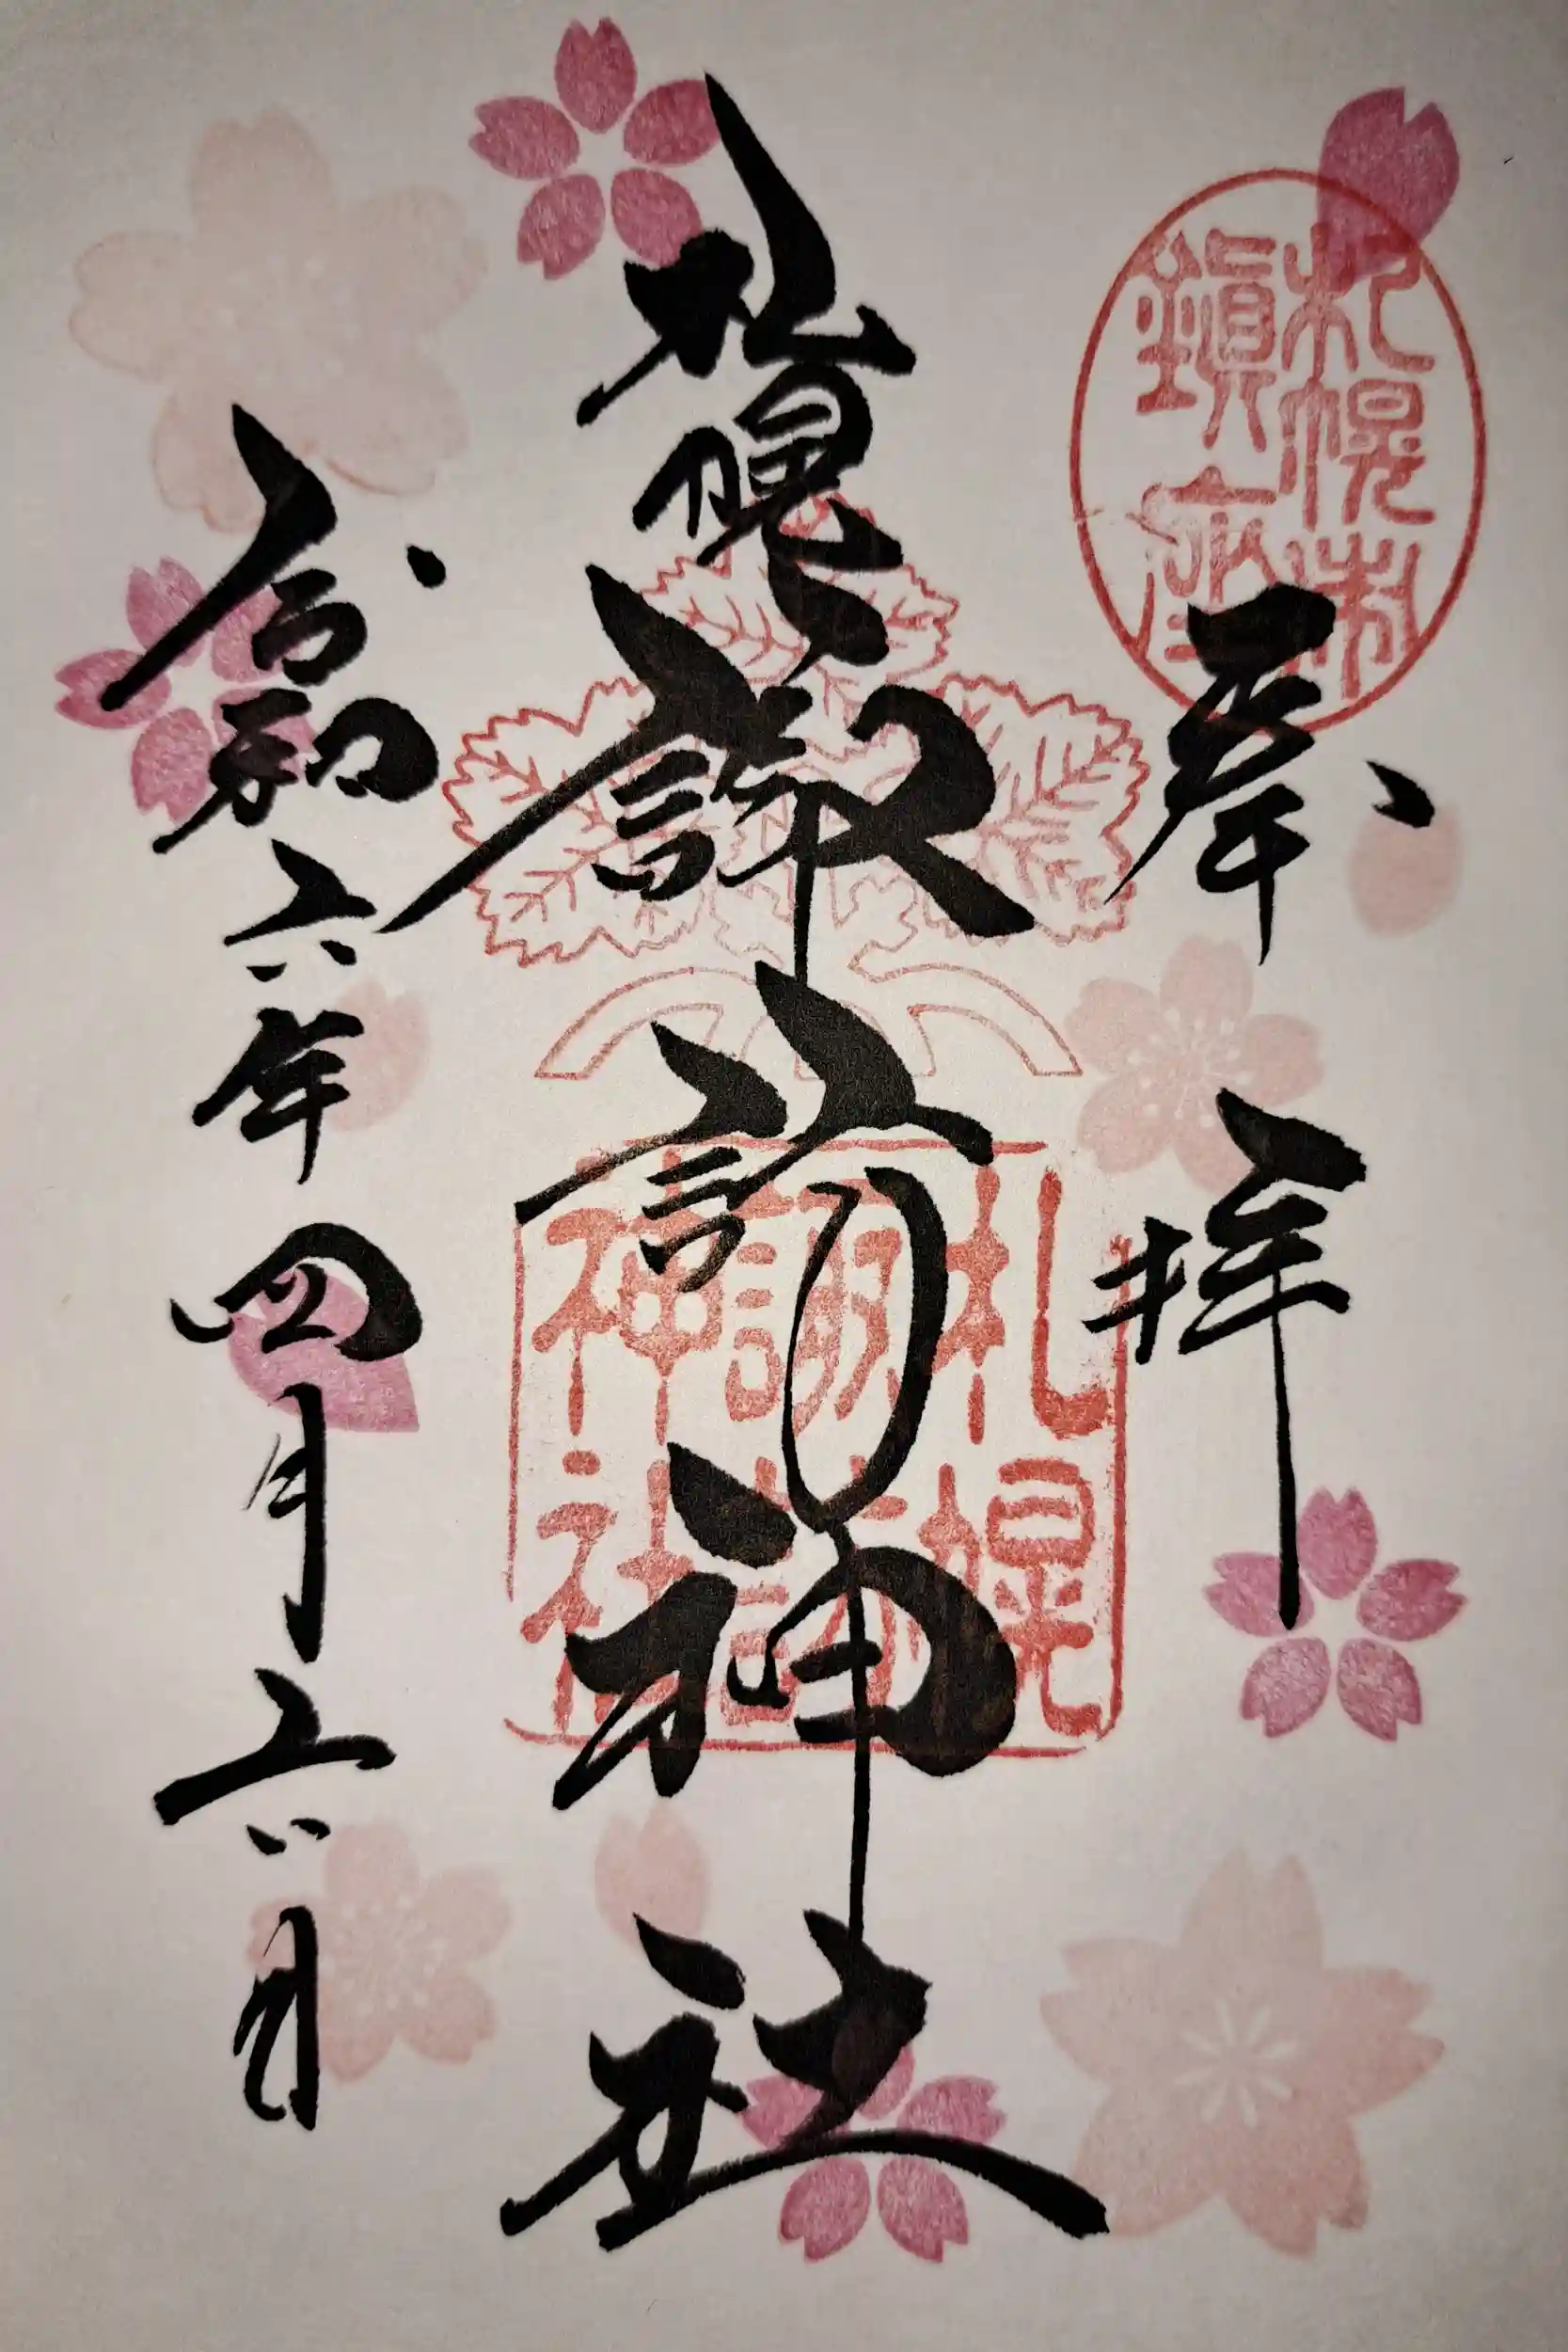 奉拝
札幌市
鎮座
札幌諏訪神社
札幌
諏訪
神社
令和六年四月六日